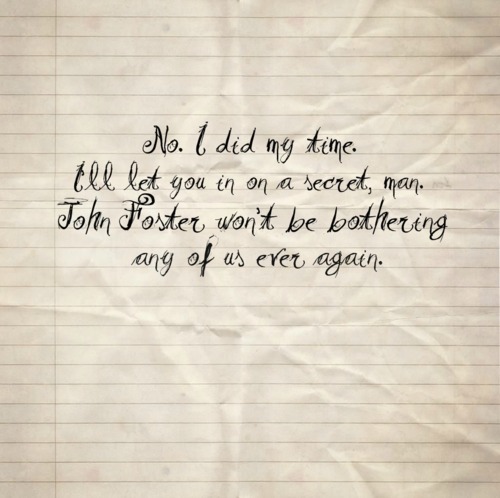 No. I did my time.
I'll let you in on a secret, man.
John Foster won't be bothering
any of us ever again.